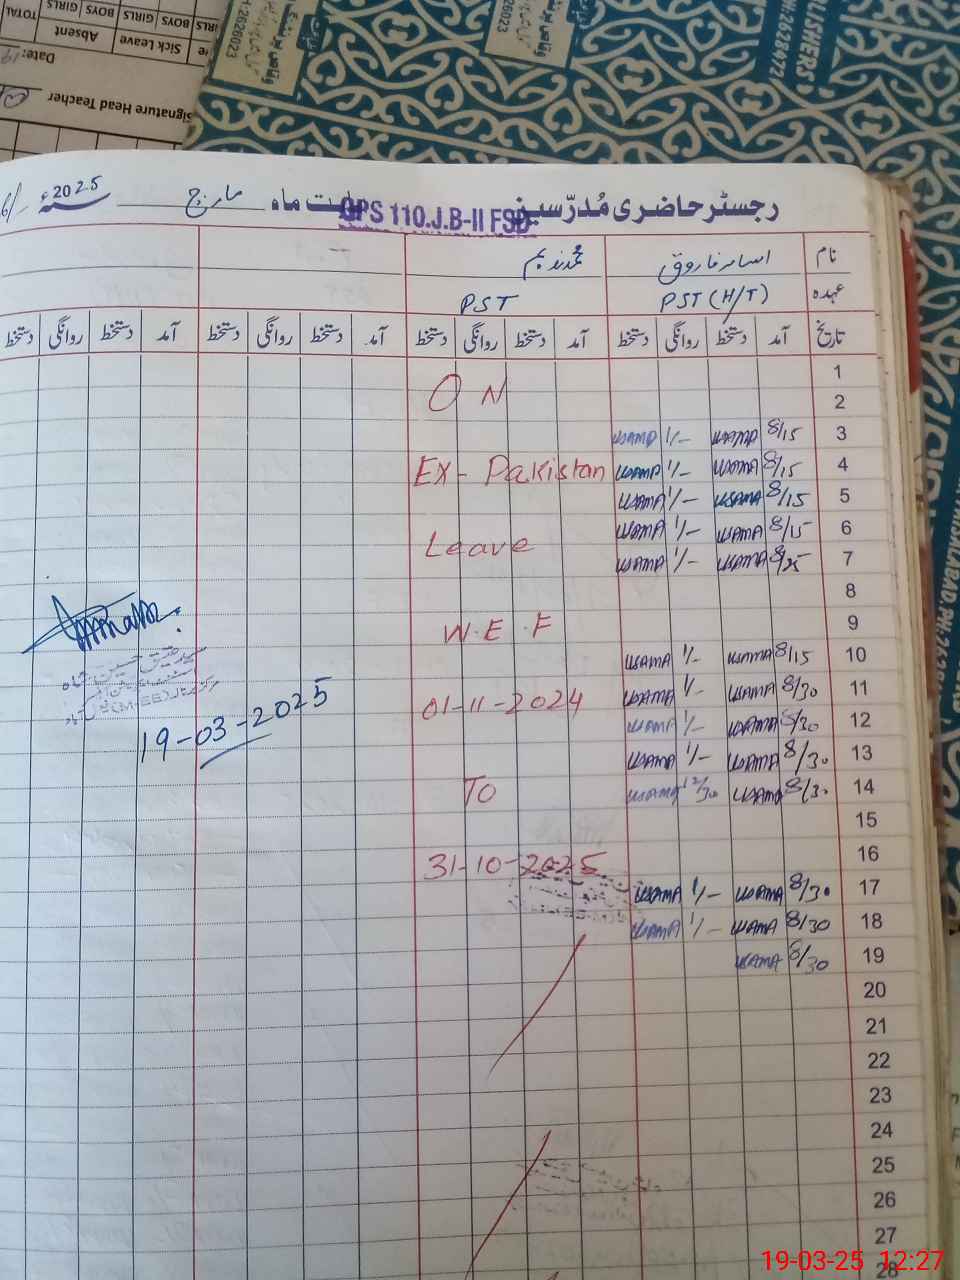 Signature Head Teacher
Date: 19
Sick Leave
Absent
TOTAL
BOYS GIRLS BOYS GIRLS
2628472
2626023
رجسٹر حاضری مُدرّسین
GPS 110.J.B-II FSD
ماہ مارچ 2025
نام اسامہ فاروق محمد ندیم
عہدہ PST (H/T) PST
تاریخ آمد دستخط روانگی دستخط آمد دستخط روانگی دستخط آمد دستخط روانگی دستخط آمد دستخط روانگی دستخط
1
2
ON
3 8/15 USAMA 1/- USAMA
4 8/15 USAMA 1/- USAMA
EX-Pakistan
5 8/15 USAMA 1/- USAMA
6 8/15 USAMA 1/- USAMA
Leave
7 8/25 USAMA 1/- USAMA
8
9
W.E.F
10 8/15 USAMA 1/- USAMA
11 8/30 USAMA 1/- USAMA
01-11-2024
12 8/30 USAMA 1/- USAMA
13 8/30 USAMA 1/- USAMA
19-03-2025
14 8/30 USAMA 12/30 USAMA
TO
15
16
31-10-2025
17 8/30 USAMA 1/- USAMA
18 8/30 USAMA 1/- USAMA
19 8/30 USAMA
20
21
22
23
24
25
26
27
28
19-03-25 12:27